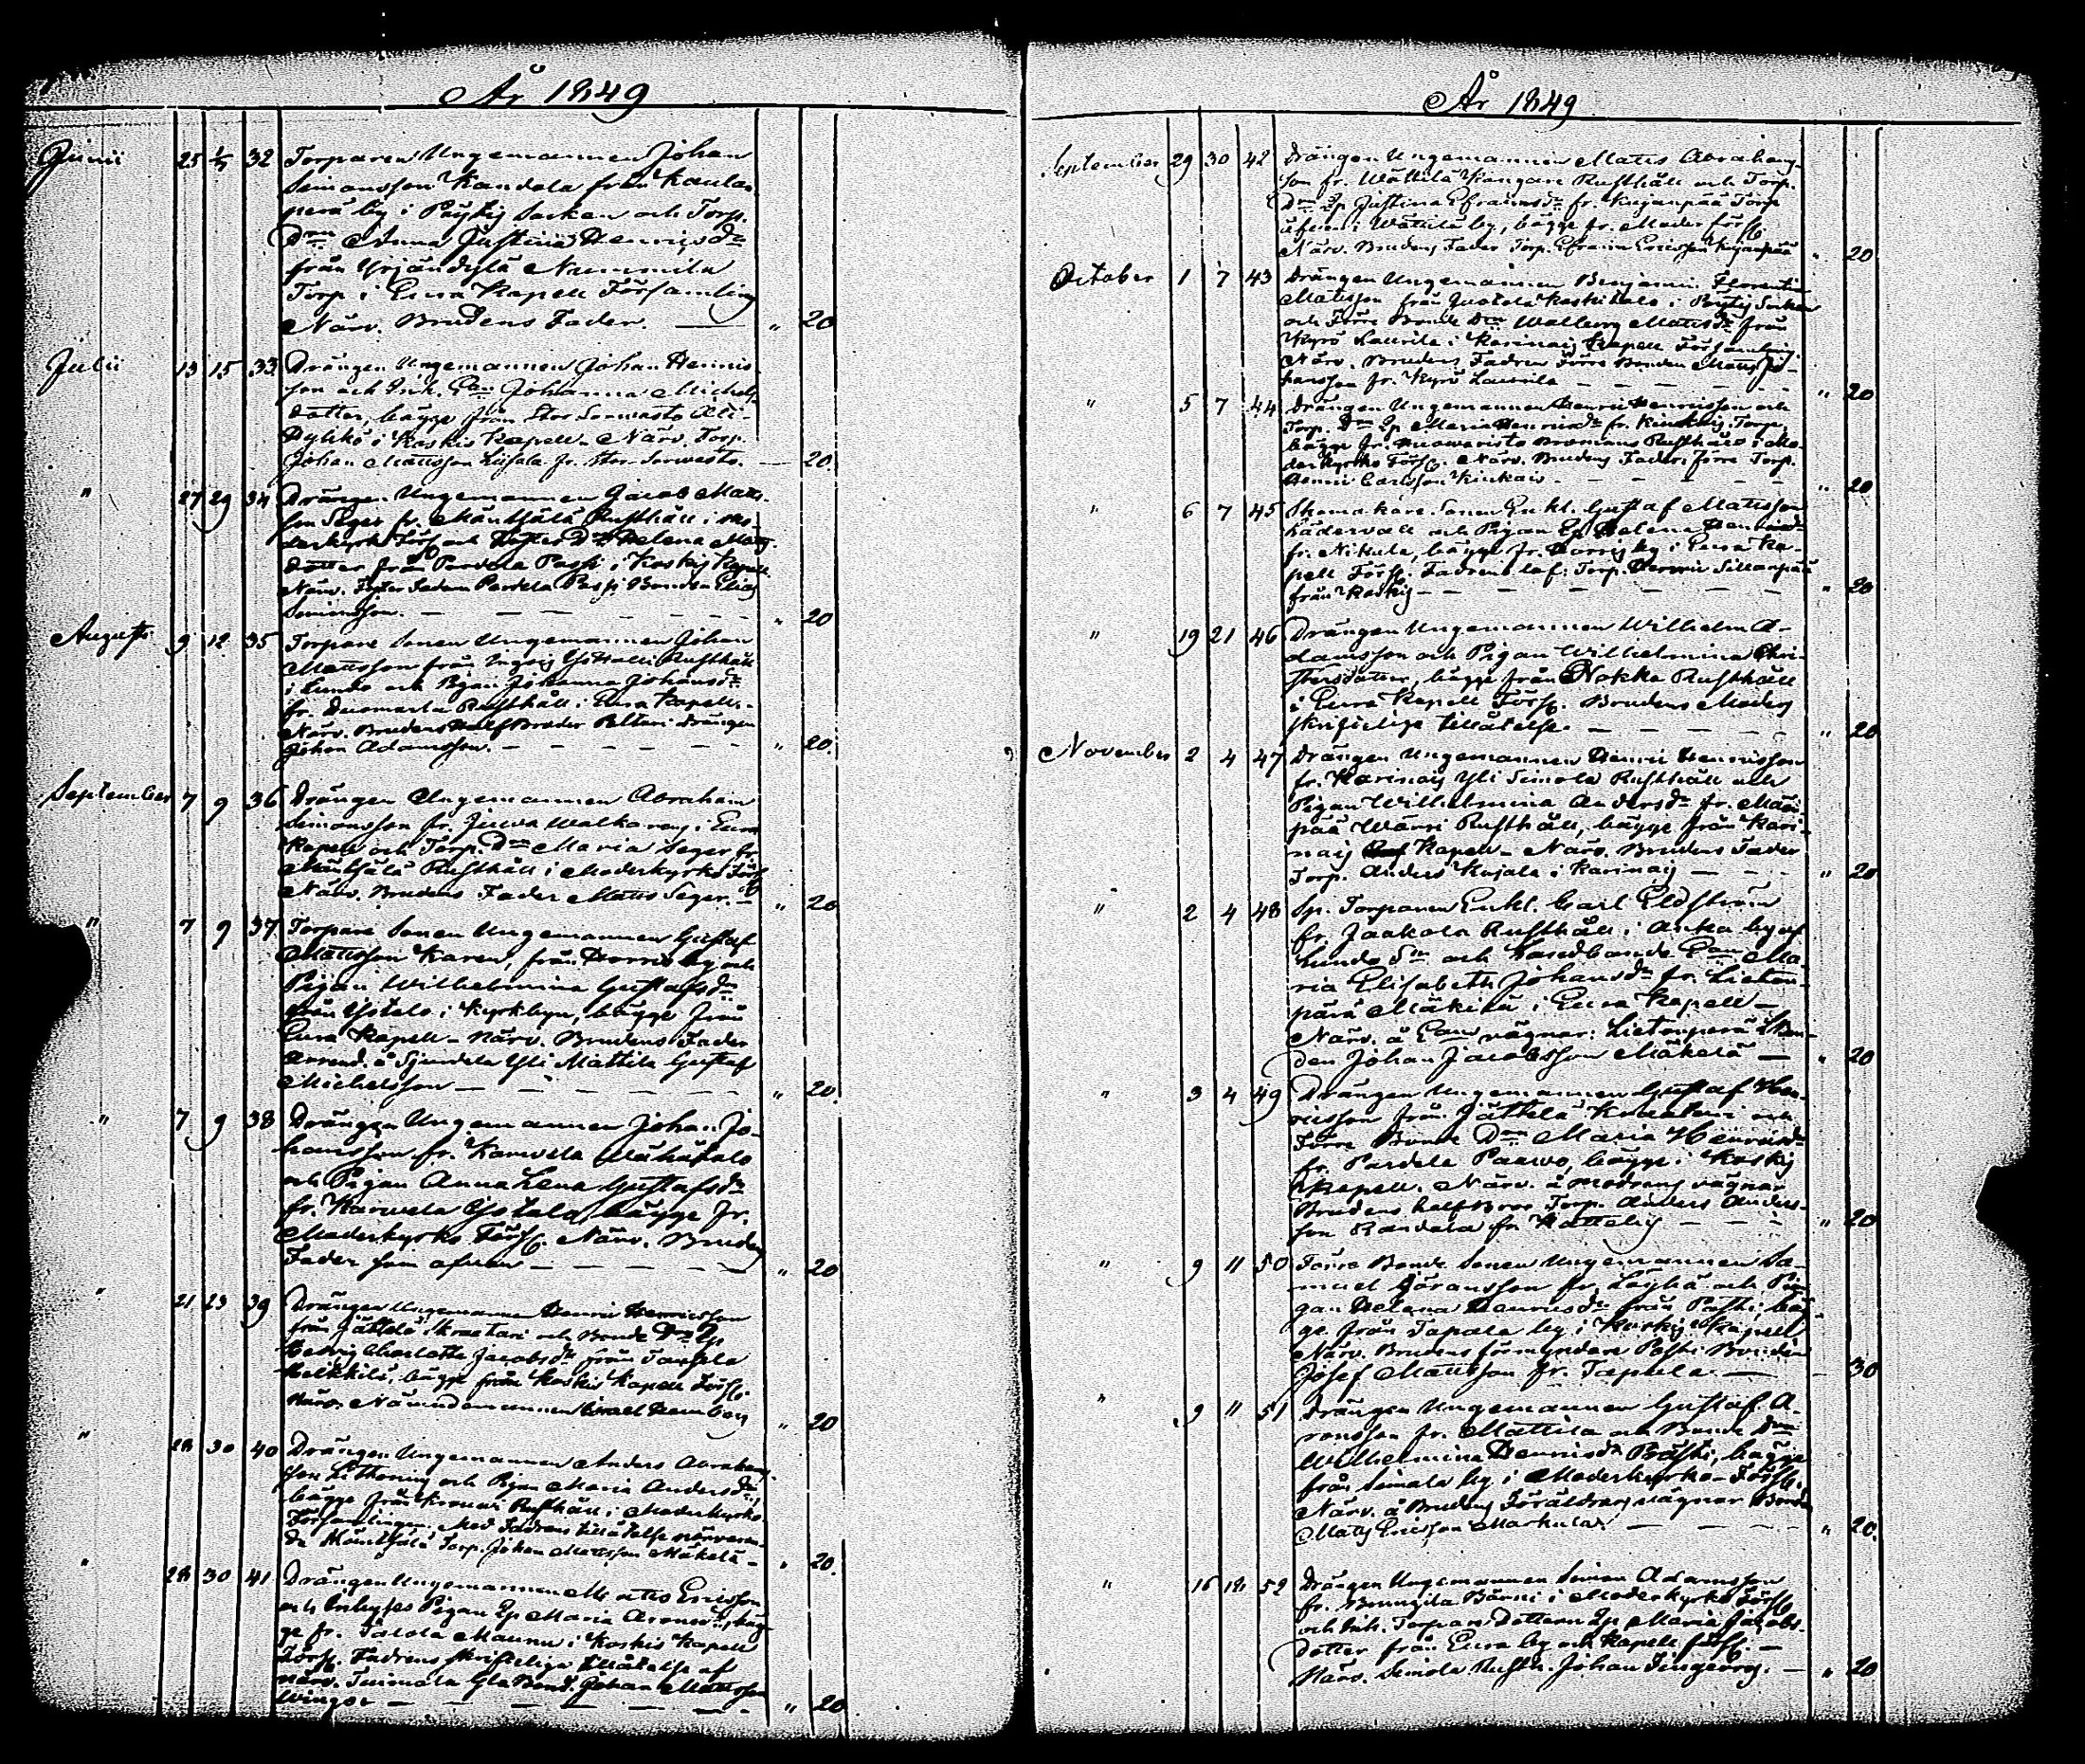 År 1849
Junii 25 1/7 32 Torparen Ungemannen Johan
Simonsson Kandola från Kaulan-
perä by i Pöytis Socken och Torp.
Dttrn Anna Justina Henricsdr
från Yrjändylä Nummila
Torp i Eura Kapell Församling
Närv. Brudens Fader. — " 20
Julii 13 15 33 Drängen Ungemannen Johan Henrics-
son och Inh. Johanna Michels-
dotter, bägge från Stor Sorvasto Ali-
Pyhkö i Koskis Kapell. Närv. Torp.
Johan Mattsson fr. Stor Sorvasto. — 20
" 27 29 34 Drängen Ungemannen Jacob Matts-
son Seger fr. Mäntsälä Rusthåll i Mo-
derkyrko Förs. och Dtr Helena Marg.
dotter från Pardela Passi i Koskis Kapell.
Närv. Pardela Passi Bonden Elias
Simonsson. — " 20
Augusti 9 12 35 Torpare Sonen Ungemannen Johan
Mattsson från Rusthåll
i Lundo och Pigan Johanna Johansdr
fr. Rusthåll i Eura Kapell.
Närv. Brudens Half Broder Drängen
Johan Adamsson. — " 20.
September 7 9 36 Drängen Ungemannen Abraham
Simonsson fr. Juva i Eura
Kapell och Torp. Dttrn Maria Seger fr.
Mäntsälä Rusthåll i Moderkyrko Förs.
Närv. Brudens Fader Matts Seger. — " 20
" 7 9 37 Torpare Sonen Ungemannen Gustaf
Mattsson Karen, från by och
Pigan Wilhelmina Gustafsdr
från Ystalo i Kyrkbyn, bägge från
Eura Kapell - Närv. Brudens Fader
Arrend. å Sjundela Yli Mattila Gustaf
Michelsson — " 20.
" 7 9 38 Drängen Ungemannen Johan Jo-
hansson fr. Karwela Mähätalo
och Pigan Anna Lena Gustafsdr
fr. Karwela Ystalo, bägge fr.
Moderkyrko Förs. Närv. Brudens
Fader som ofvan — " 20
" 21 23 39 Drängen Ungemannen Henric Henricsson
från Jättelä Kraatari och Bonde Dttrn Ep
Hedvig Charlotta Jacobsdr från
Heikkilä, bägge från Koskis Kapell Förs.
Närv. Nämndemannen Israel " 20
" 28 30 40 Drängen Ungemannen Anders Abrahams-
son och Pigan Maria Andersdr,
bägge från Rusthåll i Moderkyrko
Församlingen. Med Fadrens tillåtelse närvaran-
de Mäntsälä Torp. Johan Mattsson Mäkelä — " 20.
" 28 30 41 Drängen Ungemannen Matts Ericsson
och Inhyses Pigan Ep Maria Aronsdr, bäg-
ge fr. Talola Maunu i Koskis Kapell
Förs. Fadrens skriftliga tillåtelse af
närv. Tuimala Bond. Johan Mattsson
— " 20
År 1849
September 29 30 42 Drängen Ungemannen Matts Abrahams-
son fr. Wättilä Kangare Rusthåll och Torp.
Dttrn Ep Justina Efraimsdr fr. Kujanpää Torp
i Wättilä by, bägge fr. Moder förs.
Närv. Brudens Fader Torp. Efraim Ericsson Kujanpää " 20
October 1 7 43 Drängen Ungemannen Benjamin Florentin
Mattsson från Koskitalo i Pöytis Socken
och Förre Bonde Dttrn Walborg Mattsdr från
Kyrö Laurila i Karinais Kapell Församling.
Närv. Brudens Fader Förre Bonden Matts Jo-
hansson fr. Kyrö Laurila — " 20
" 5 7 44 Drängen Ungemannen Henric Henricsson och
Torp. Dttrn Ep Maria Henricsdr fr. Kiukais Torp,
bägge fr. Rusthåll i Mo-
derkyrko Förs. Närv. Brudens Fader, Förre Torp.
Henric Carlsson Kiukais — " 20
" 6 7 45 Skomakare Sonen Enkl. Gustaf Mattsson
och Pigan Ep Helena Henricsdr
fr. Nikula, bägge fr. by i Eura Ka-
pell Förs. Fadrens lof: Torp. Henric Sillanpää
från Koskis — " 20
" 19 21 46 Drängen Ungemannen Wilhelm A-
damsson och Pigan Wilhelmina Chri-
stersdotter, bägge från Nokka Rusthåll
i Eura Kapell Förs. Brudens Moders
skriftliga tillåtelse — " 20
November 2 4 47 Drängen Ungemannen Henric Henricsson
fr. Karinais Yli Simola Rusthåll och
Pigan Wilhelmina Andersdr fr. Mäen-
pää Wärri Rusthåll, bägge från Kari-
nais Kapell - Närv. Brudens Fader
Torp. Anders Kujala i Karinais — " 20
" 2 4 48 Sp. Torparen Enkl. Carl Eldström
fr. Jaakola Rusthåll i Anka by af
Lundo Sn och Landbonde Ma-
ria Elisabeth Johansdr fr. Lieton-
perä Mäkilä i Eura Kapell —
Närv. å vägnar: Lietonperä Bon-
den Johan Jacobsson Mäkelä — " 20
" 3 4 49 Drängen Ungemannen Gustaf Hen-
ricsson från Jättelä Kraatari och
Förre Bonde Dttrn Maria Henricsdr
fr. Pardela Paavo, bägge i Koskis
Kapell. Närv. å modrens vägnar
Brudens half Bror Torp. Anders Anders-
son Randala fr. Kattelis — " 20
" 9 11 50 Förre Bonde Sonen Ungemannen Sa-
muel Göransson fr. Löyhä och Pi-
gan Helena Henricsdr från Passi, bäg-
ge från Tapala by i Koskis Kapell
Närv. Brudens förmyndare Passi Bonden
Josef Mattsson fr. Tapala — 30
" 9 11 51 Drängen Ungemannen Gustaf A-
ronsson fr. Mattila och Bonde Dttrn
Wilhelmina Henricsdr Prästi, bägge
från Simala by i Moderkyrko-Förs.
Närv. å Brudens Föräldrars vägnar Bonden
Matts Ericsson Markula — " 20.
" 16 18 52 Drängen Ungemannen Simon Adamsson
fr. Bärni i Moderkyrko Förs.
och Inh. Torpare Dottern Ep Maria Jacobs-
dotter från Eura by och Kapell förs. —
Närv. Simola Rusth. Johan — " 20